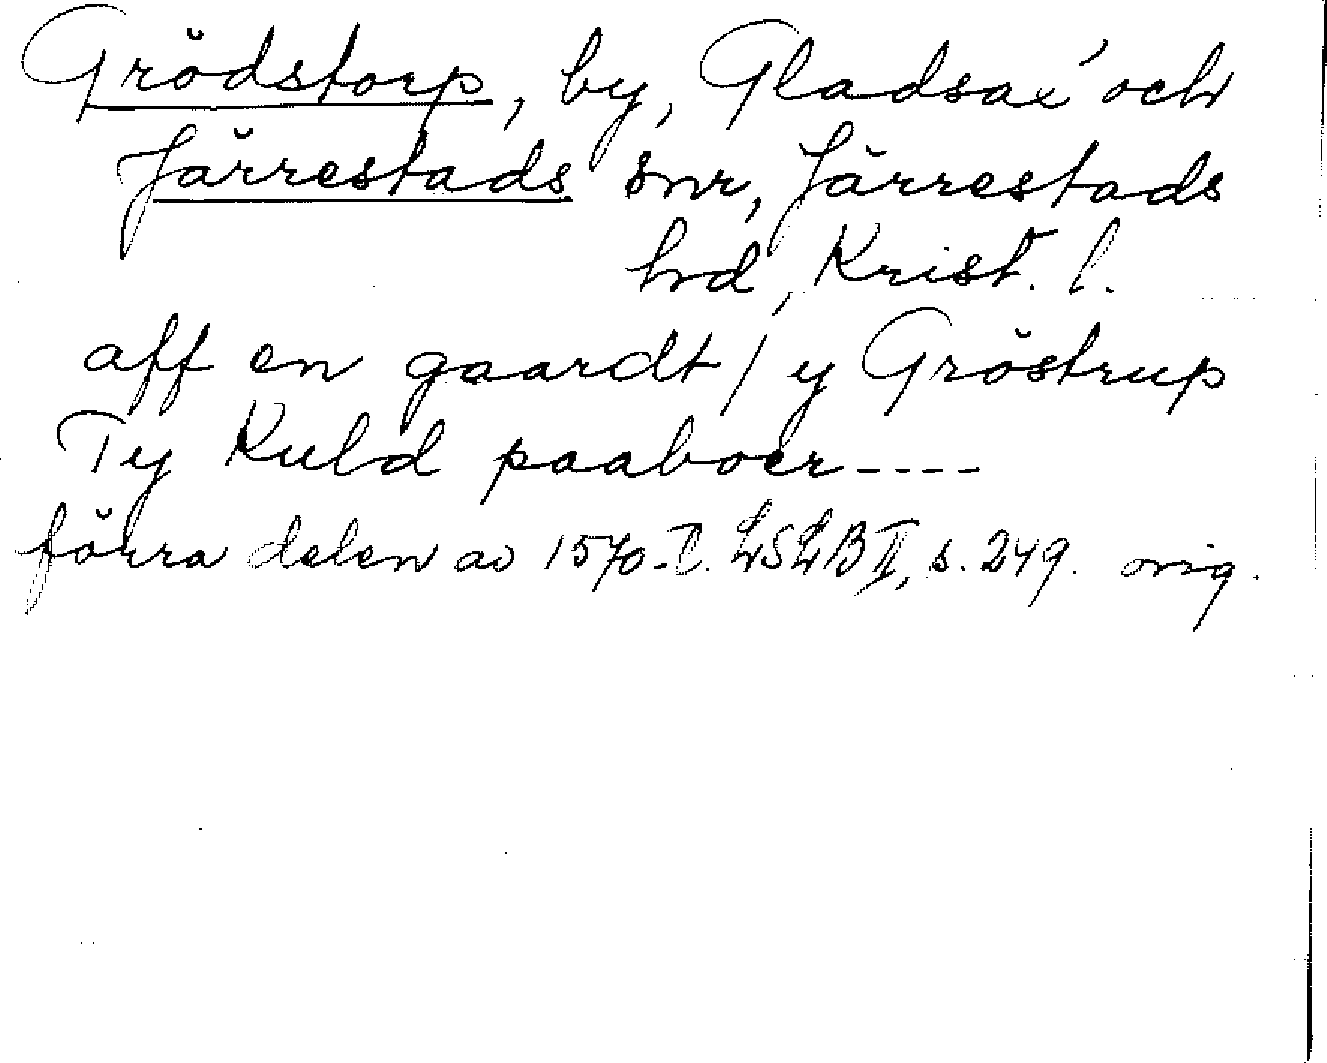 Grödstorp, by, Gladsax och
Järrestads snr, Järrestads
hd, Krist. l.
aff en gaardt / y Gröstrup
Ty Kuld paaboer ----
förra delen av 1570-t. LSLB II, s. 249. orig.